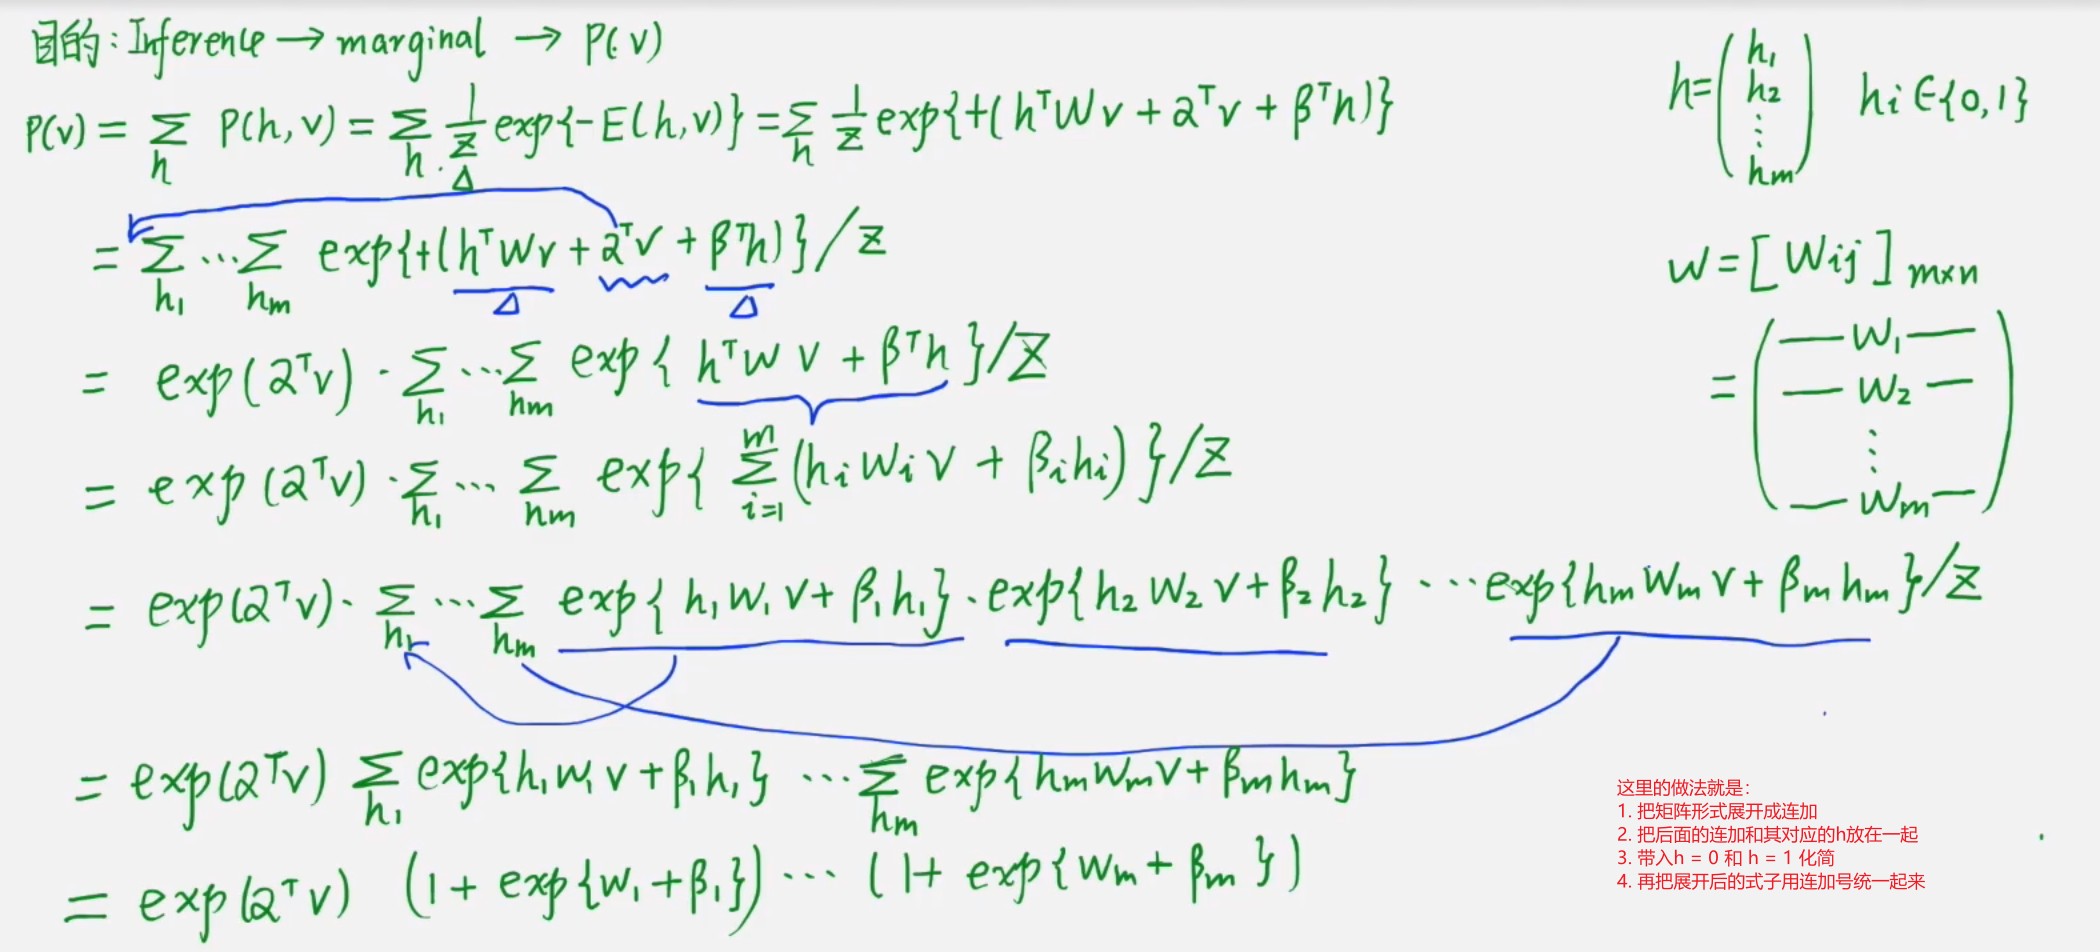 目的: Inference → marginal → P(v)
P(v) = Σ_h P(h,v) = Σ_h 1/Z exp{-E(h,v)} = Σ_h 1/Z exp{+(hᵀWv + αᵀv + βᵀh)}
Δ
= Σ_h₁ ... Σ_hm exp{+(hᵀWv + αᵀv + βᵀh)}/Z
Δ Δ
= exp(αᵀv) · Σ_h₁ ... Σ_hm exp{hᵀWv + βᵀh}/Z
= exp(αᵀv) · Σ_h₁ ... Σ_hm exp{Σ_{i=1}^m (hᵢwᵢv + βᵢhᵢ)}/Z
= exp(αᵀv) · Σ_h₁ ... Σ_hm exp{h₁w₁v + β₁h₁} · exp{h₂w₂v + β₂h₂} ... exp{hmwmv + βmhm}/Z
= exp(αᵀv) Σ_h₁ exp{h₁w₁v + β₁h₁} ... Σ_hm exp{hmwmv + βmhm}
= exp(αᵀv) (1 + exp{w₁ + β₁}) ... (1 + exp{wm + βm})
h = (h₁
h₂
⋮
hm) hi ∈ {0,1}
W = [Wij] m×n
= (— W₁ —
— W₂ —
⋮
— Wm —)
这里的做法就是：
1. 把矩阵形式展开成连加
2. 把后面的连加和其对应的h放在一起
3. 带入h = 0 和 h = 1 化简
4. 再把展开后的式子用连加号统一起来